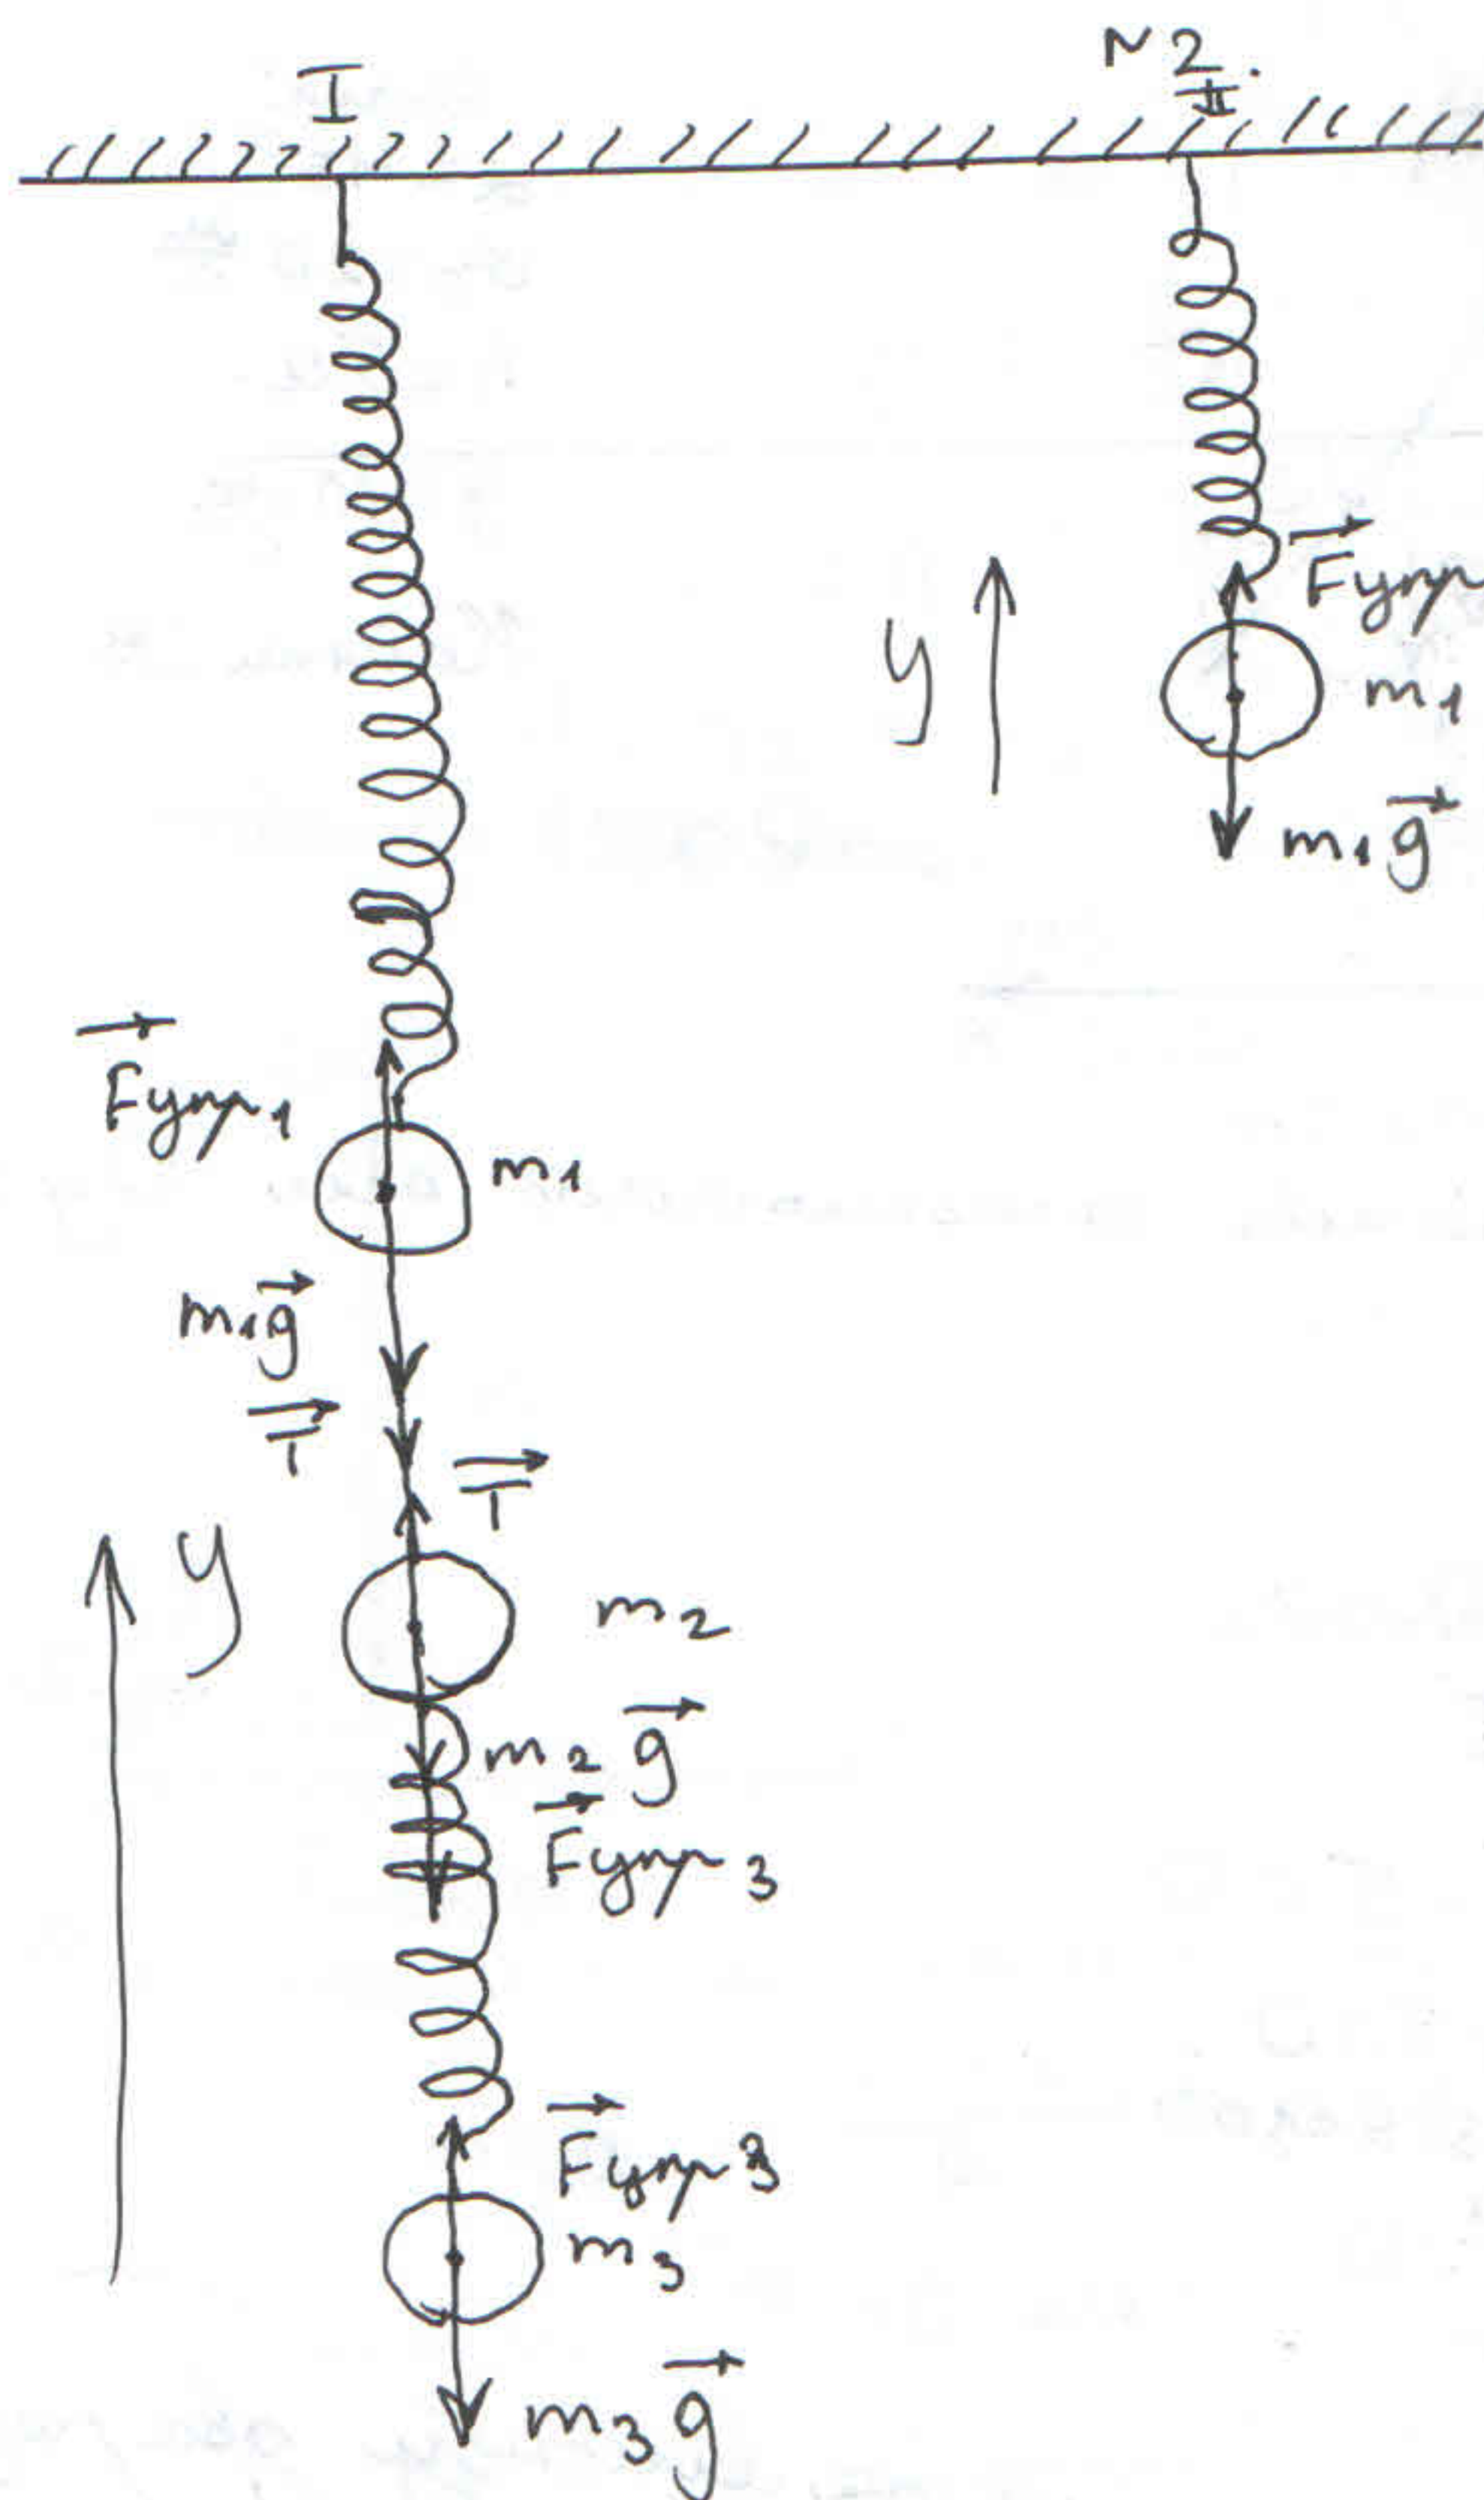 I
N2.
II
Fупр
y
m1
m1g
Fупр1
m1
m1g
T
T
y
m2
m2g
Fупр3
Fупр3
m3
m3g